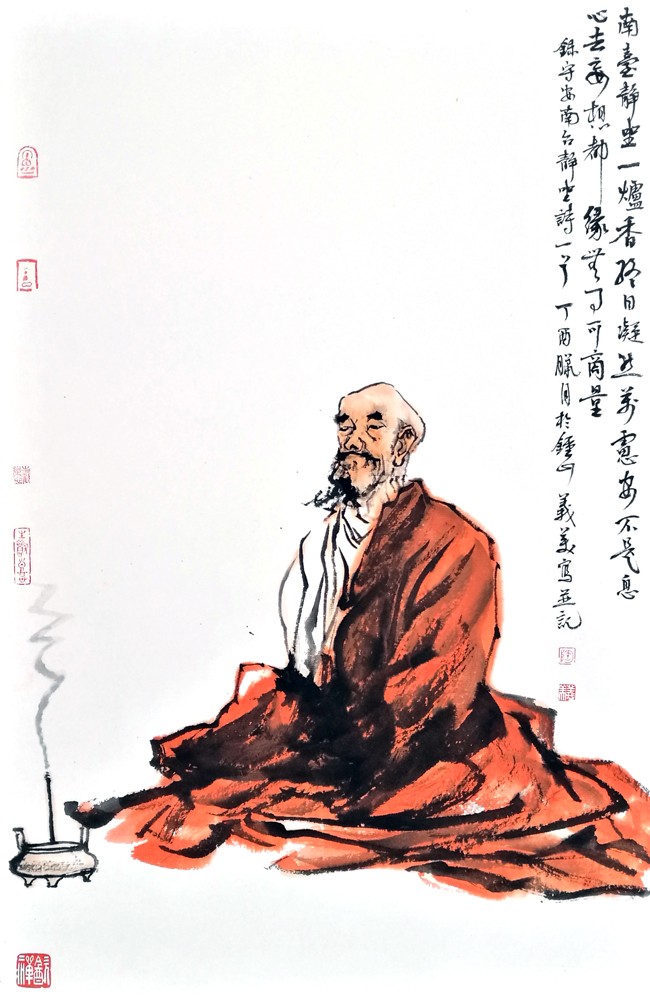 南臺靜坐一爐香終日凝然萬慮不是息
心去妄想都緣無事可商量
錄守安南台靜坐詩一首丁酉臘月於鍾山義美寫並記